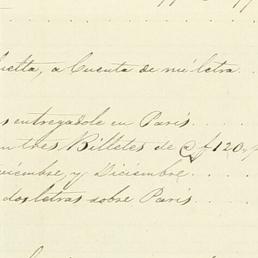 uelta, a Cuenta de mi letra
s entregadole en Paris
en tres Billetes de £ 120,
viembre, y Diciembre
dos letras sobre Paris